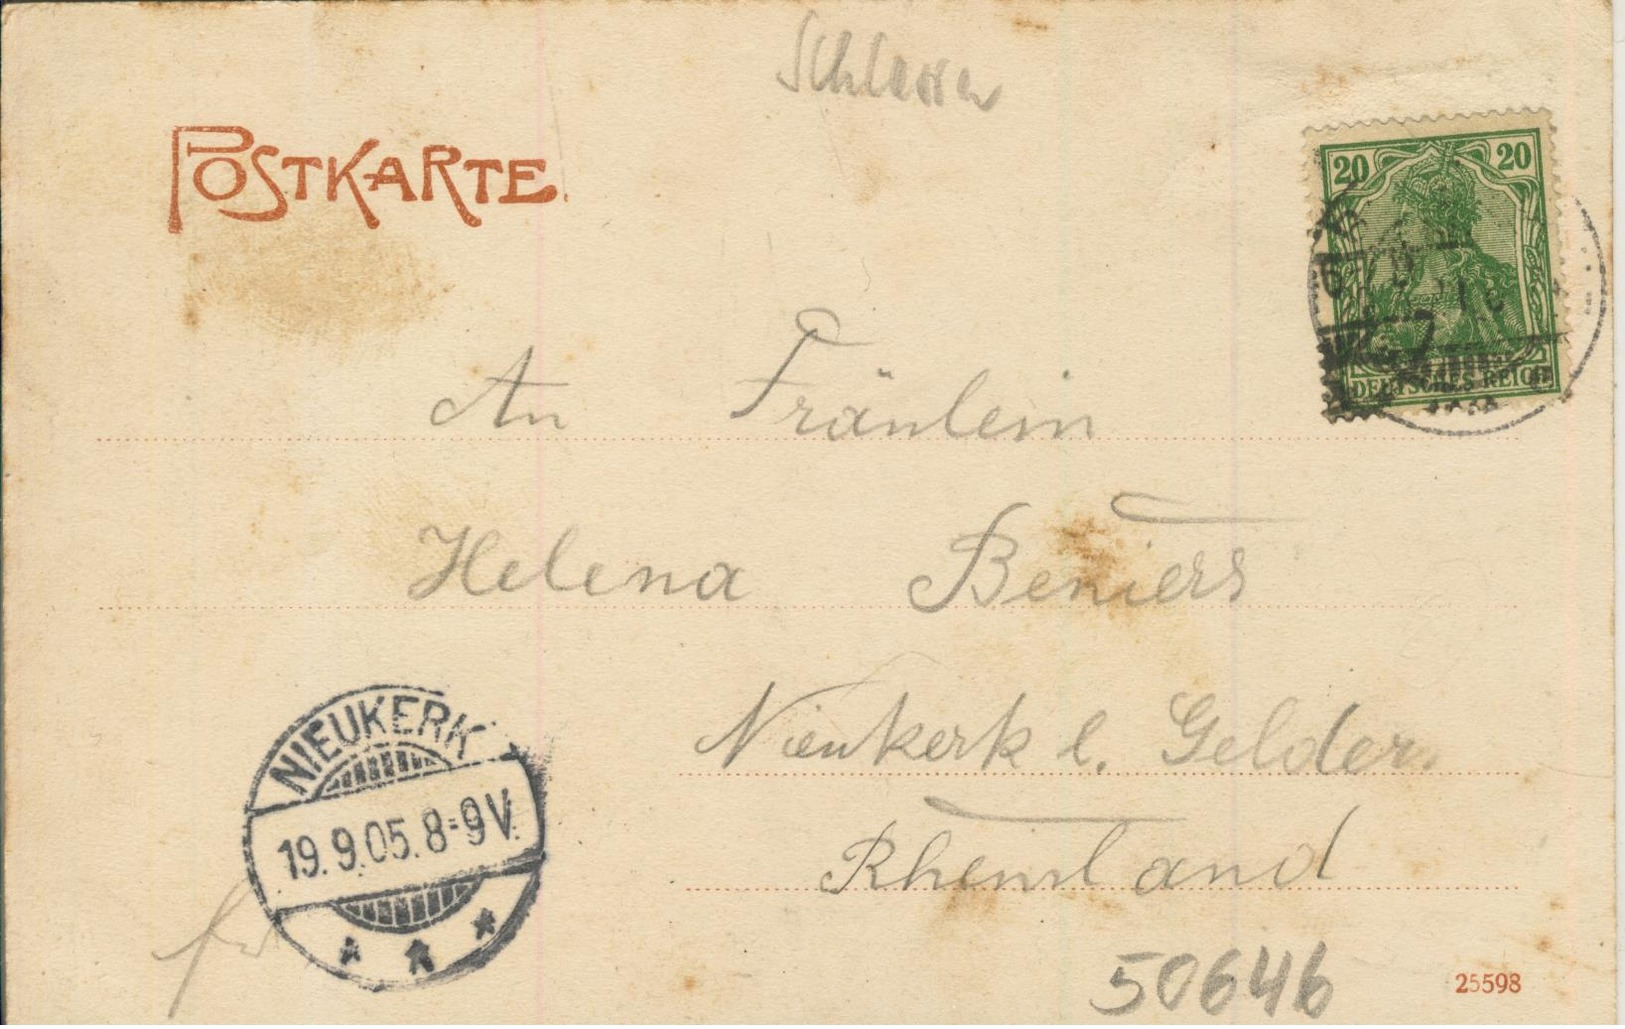 Schlosser
POSTKARTE.
20 20
DEUTSCHES REICH
An Fräulein
Helena Beniers
Nieukerk b. Geldern
Rheinland
NIEUKERK
19.9.05. 8-9V.
50646
25598